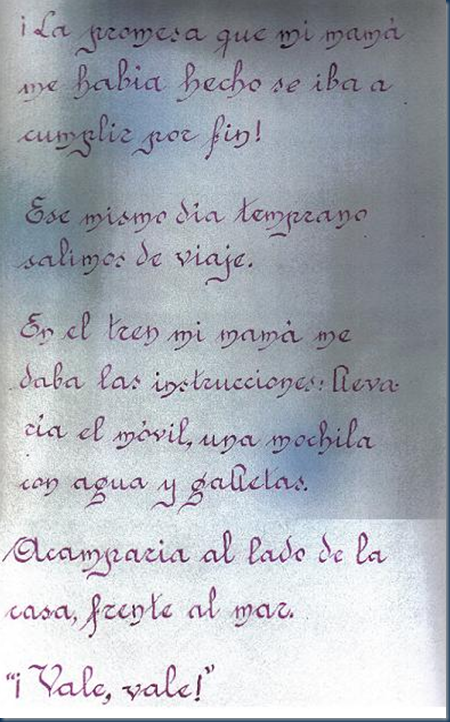 ¡La promesa que mi mamá
me había hecho se iba a
cumplir por fin!
Ese mismo día temprano
salimos de viaje.
En el tren mi mamá me
daba las instrucciones: lleva-
ría el móvil, una mochila
con agua y galletas.
Acamparía al lado de la
casa, frente al mar.
“¡Vale, vale!”